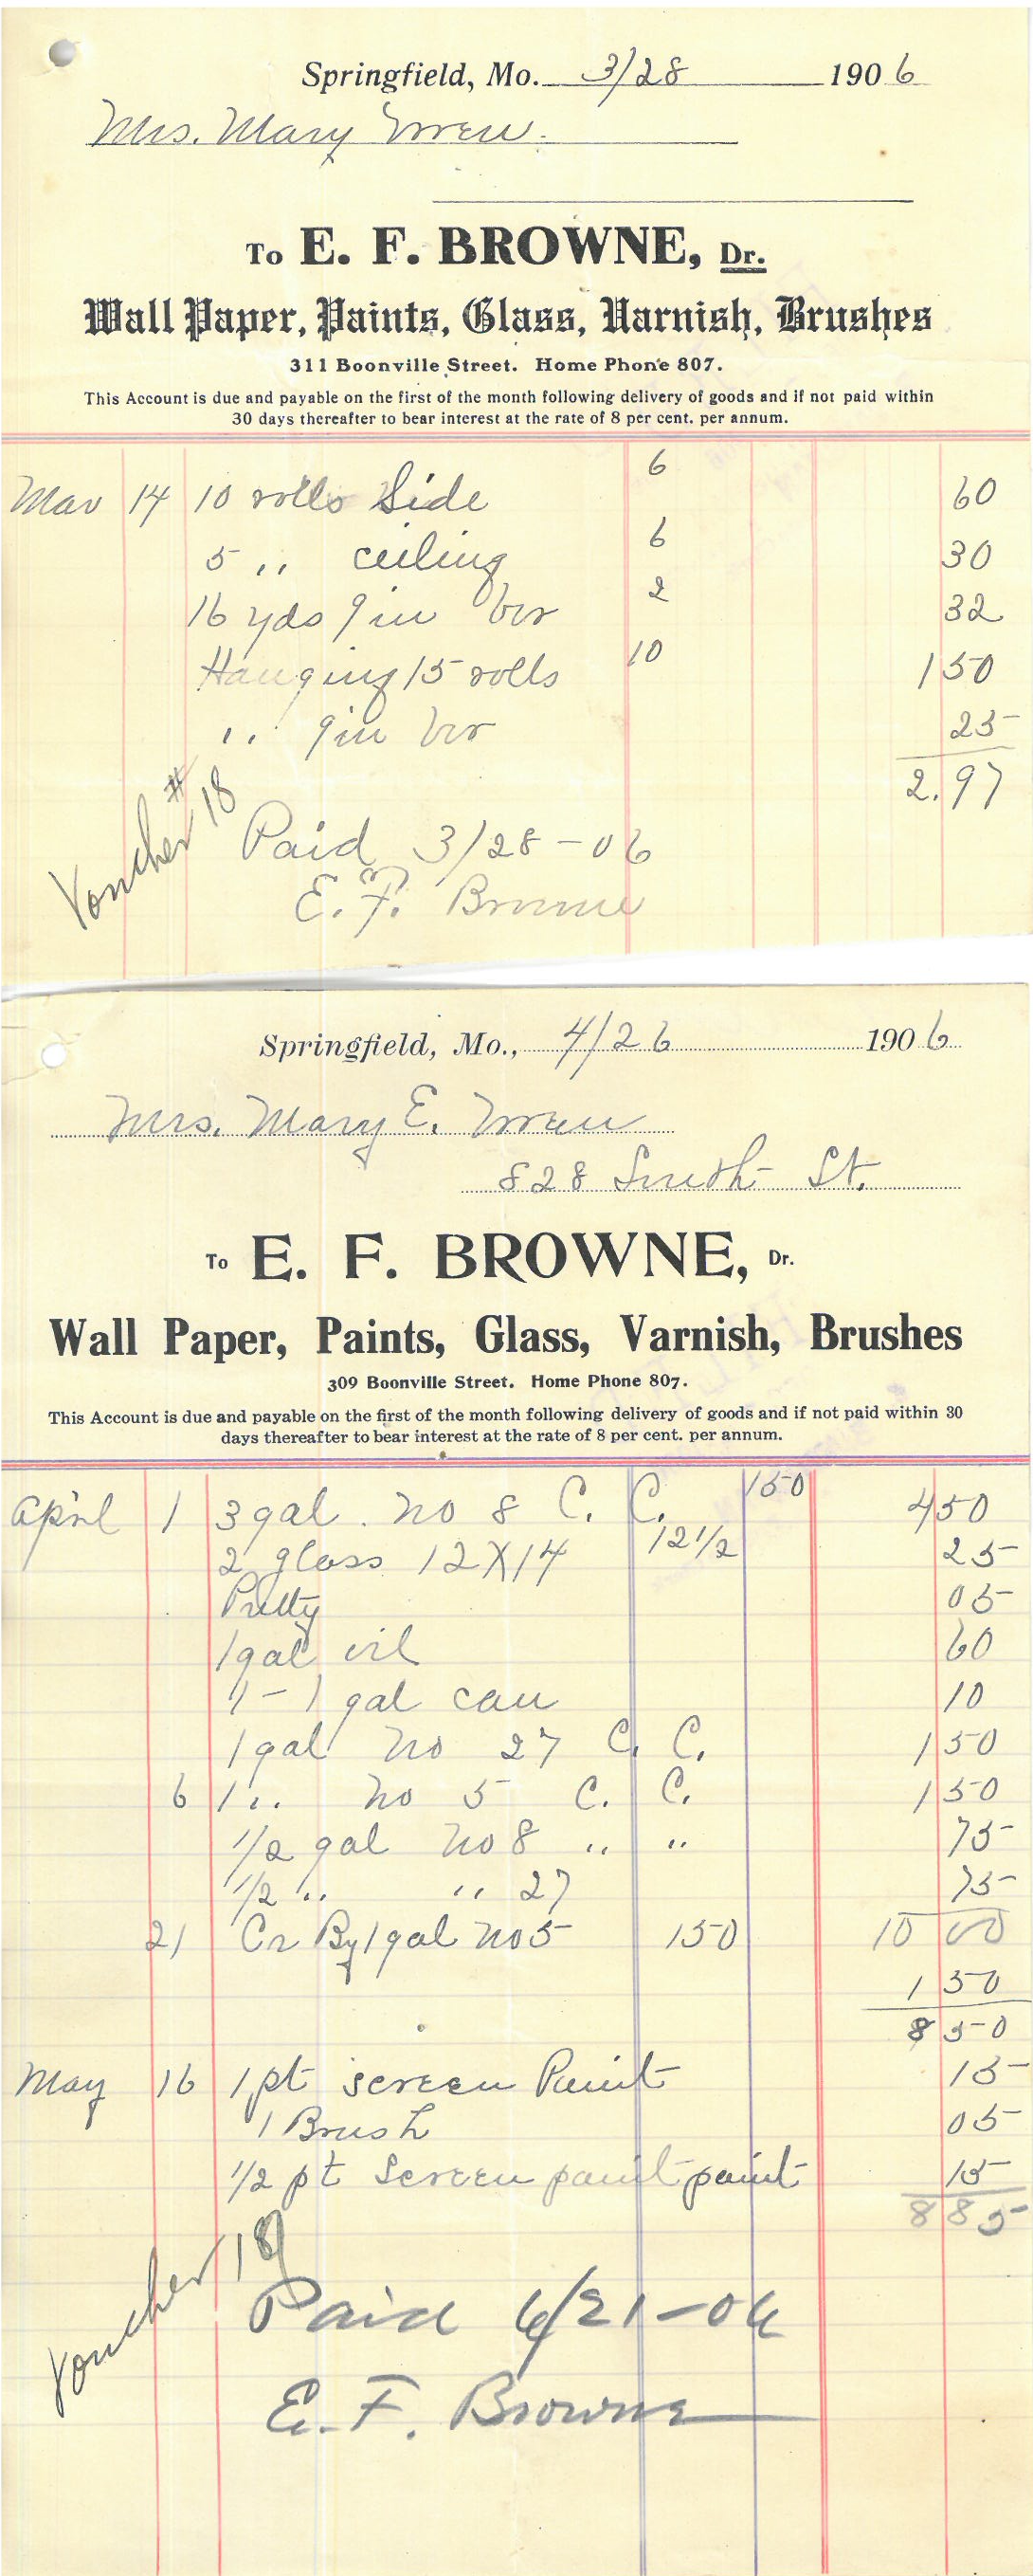 Springfield, Mo. 3/28 1906
Mrs. Mary Wren.
To E. F. BROWNE, Dr.
Wall Paper, Paints, Glass, Varnish, Brushes
311 Boonville Street. Home Phone 807.
This Account is due and payable on the first of the month following delivery of goods and if not paid within
30 days thereafter to bear interest at the rate of 8 per cent. per annum.
Mar 14 10 rolls Side 6 60
5 " ceiling 6 30
16 yds 9 in bor 2 32
Hanging 15 rolls 10 1 50
" 9 in bor 25
2.97
Voucher # 18
Paid 3/28-06
E. F. Browne
Springfield, Mo., 4/26 1906
Mrs. Mary E. Wren
828 South St.
To E. F. BROWNE, Dr.
Wall Paper, Paints, Glass, Varnish, Brushes
309 Boonville Street. Home Phone 807.
This Account is due and payable on the first of the month following delivery of goods and if not paid within 30
days thereafter to bear interest at the rate of 8 per cent. per annum.
April 1 3 gal. No 8 C. C. 150 4 50
2 glass 12X14 12 1/2 25
Putty 05
1 gal oil 60
1 - 1 gal can 10
1 gal No 27 C. C. 1 50
6 1 " No 5 C. C. 1 50
1/2 gal No 8 " " 75
1/2 " " 27 75
21 Cr By 1 gal No 5 150 10 00
1 50
8 50
May 16 1 pt screen Paint 15
1 Brush 05
1/2 pt Screen paint paint 15
8 85
Voucher 18
Paid 6/21-06
E. F. Browne